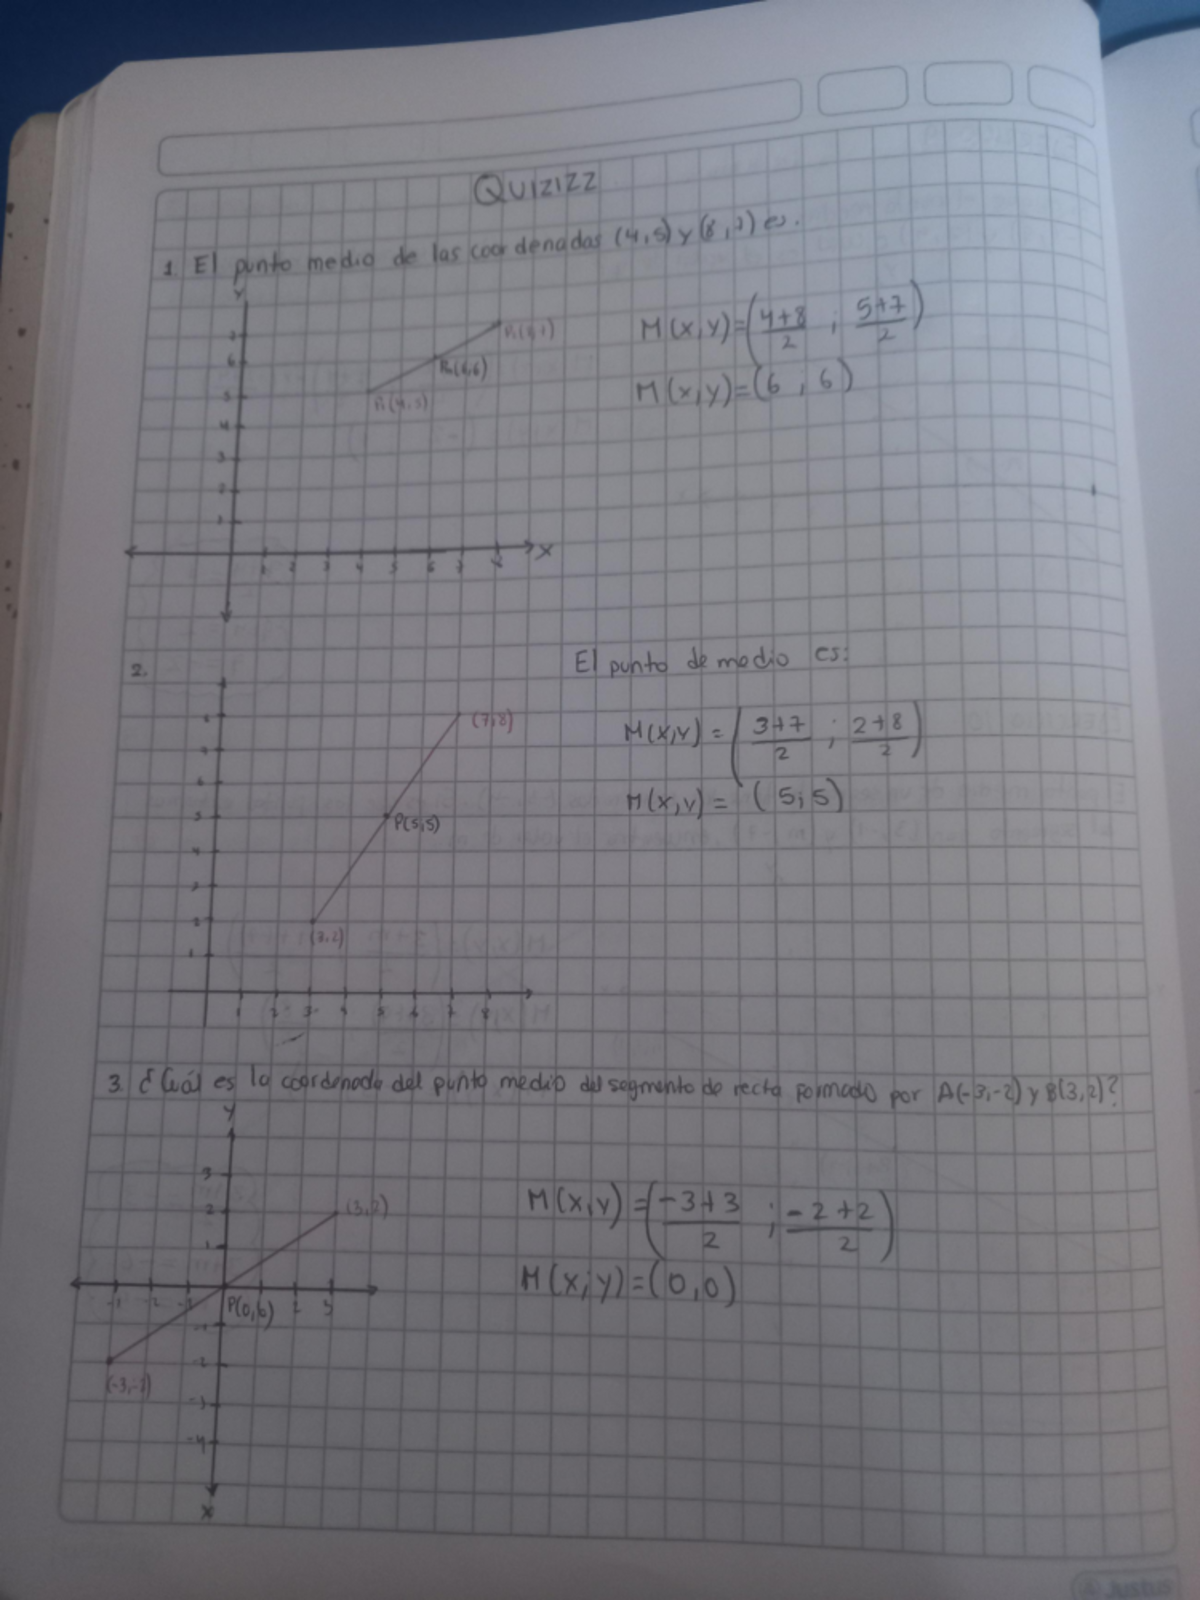 QUIZIZZ
1. El punto medio de las coordenadas (4,5) y (8,7) es.
Y
7
6
5
4
3
2
1
P₂(6,6)
P₁(4,5)
1 2 3 4 5 6 7 8 X
M(x,y)=(4+8/2 ; 5+7/2)
M(x,y)=(6 ; 6)
2.
El punto de medio es:
(7,8)
P(5,5)
(3,2)
8
7
6
5
4
3
2
1
1 2 3 4 5 6 7 8
M(x,y) = (3+7/2 ; 2+8/2)
M(x,y) = (5;5)
3. ¿Cuál es la coordenada del punto medio del segmento de recta formado por A(-3,-2) y B(3,2)?
Y
3
2
1
(3,2)
P(0,0)
2 3
-1
-2
-3
-4
X
M(x,y)=(-3+3/2 ; -2+2/2)
M(x;y)=(0,0)
Justus